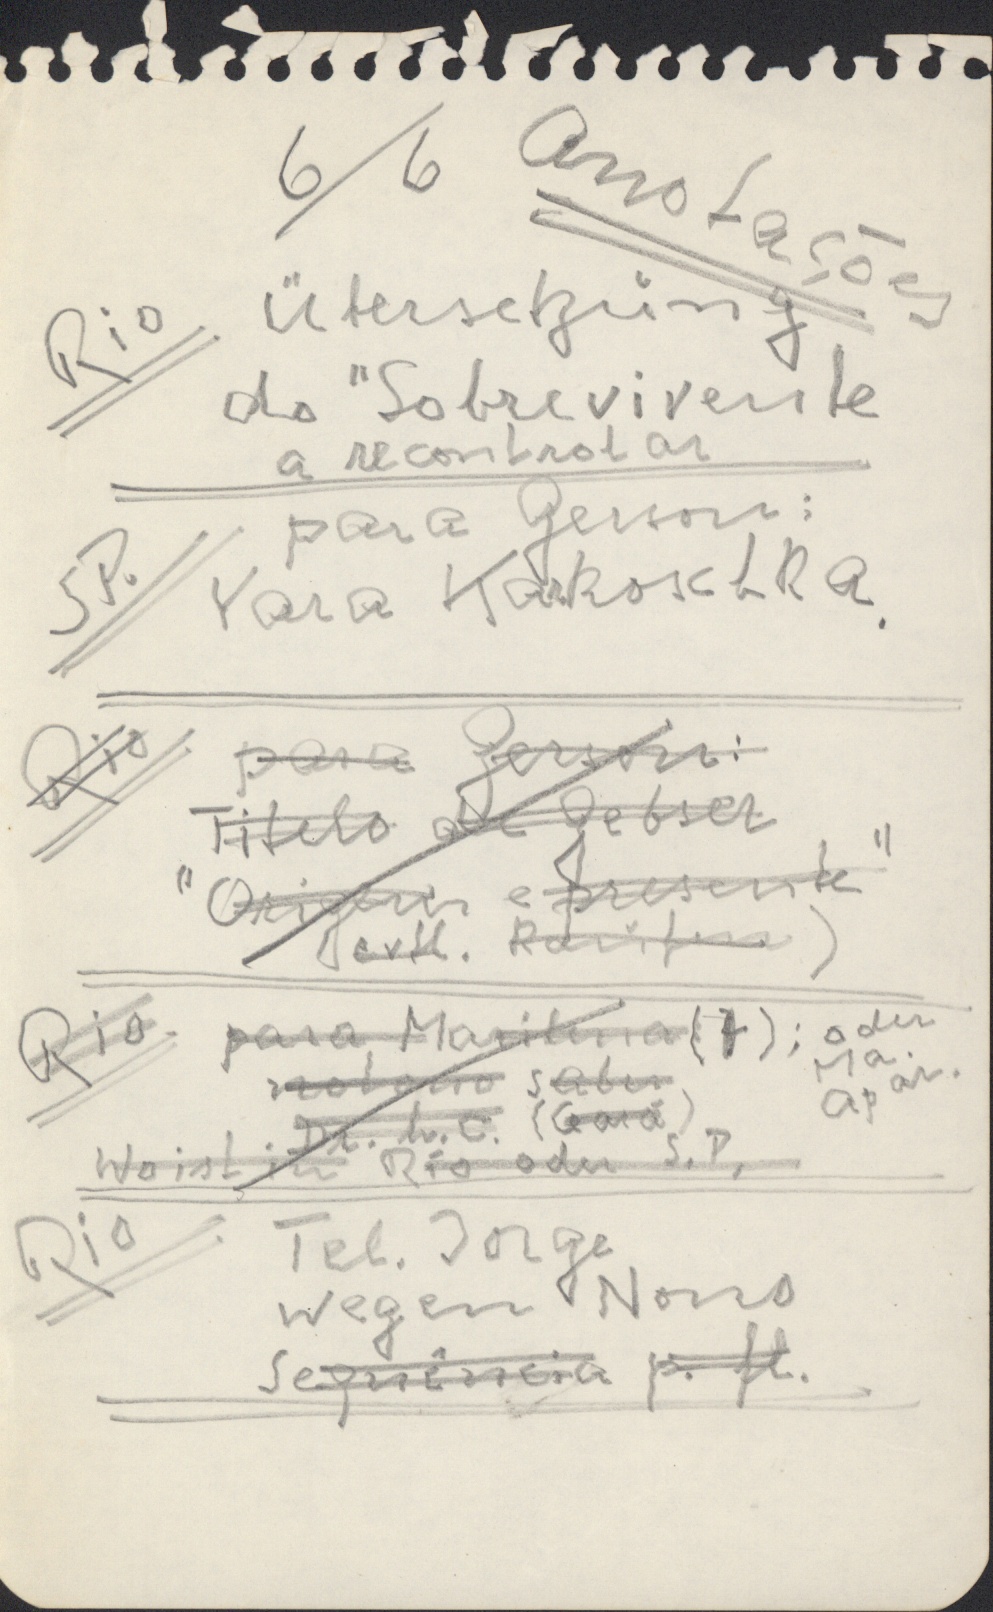 6/6 Anotações
Rio Übersetzung
do "Sobrevivente
a recontrolar
SP. para Gerson:
Yara Karkoschka.
Rio para Gerson:
Titelo de Gebser
"Origem e presente"
(evtl.
Rio. para Marilena (7); oder
Ma.
notorio saber apar.
Dr. h.c.
Wo ist in Rio oder S.P.
Rio Tel. Jorge
wegen Nono
Sequência p. fl.